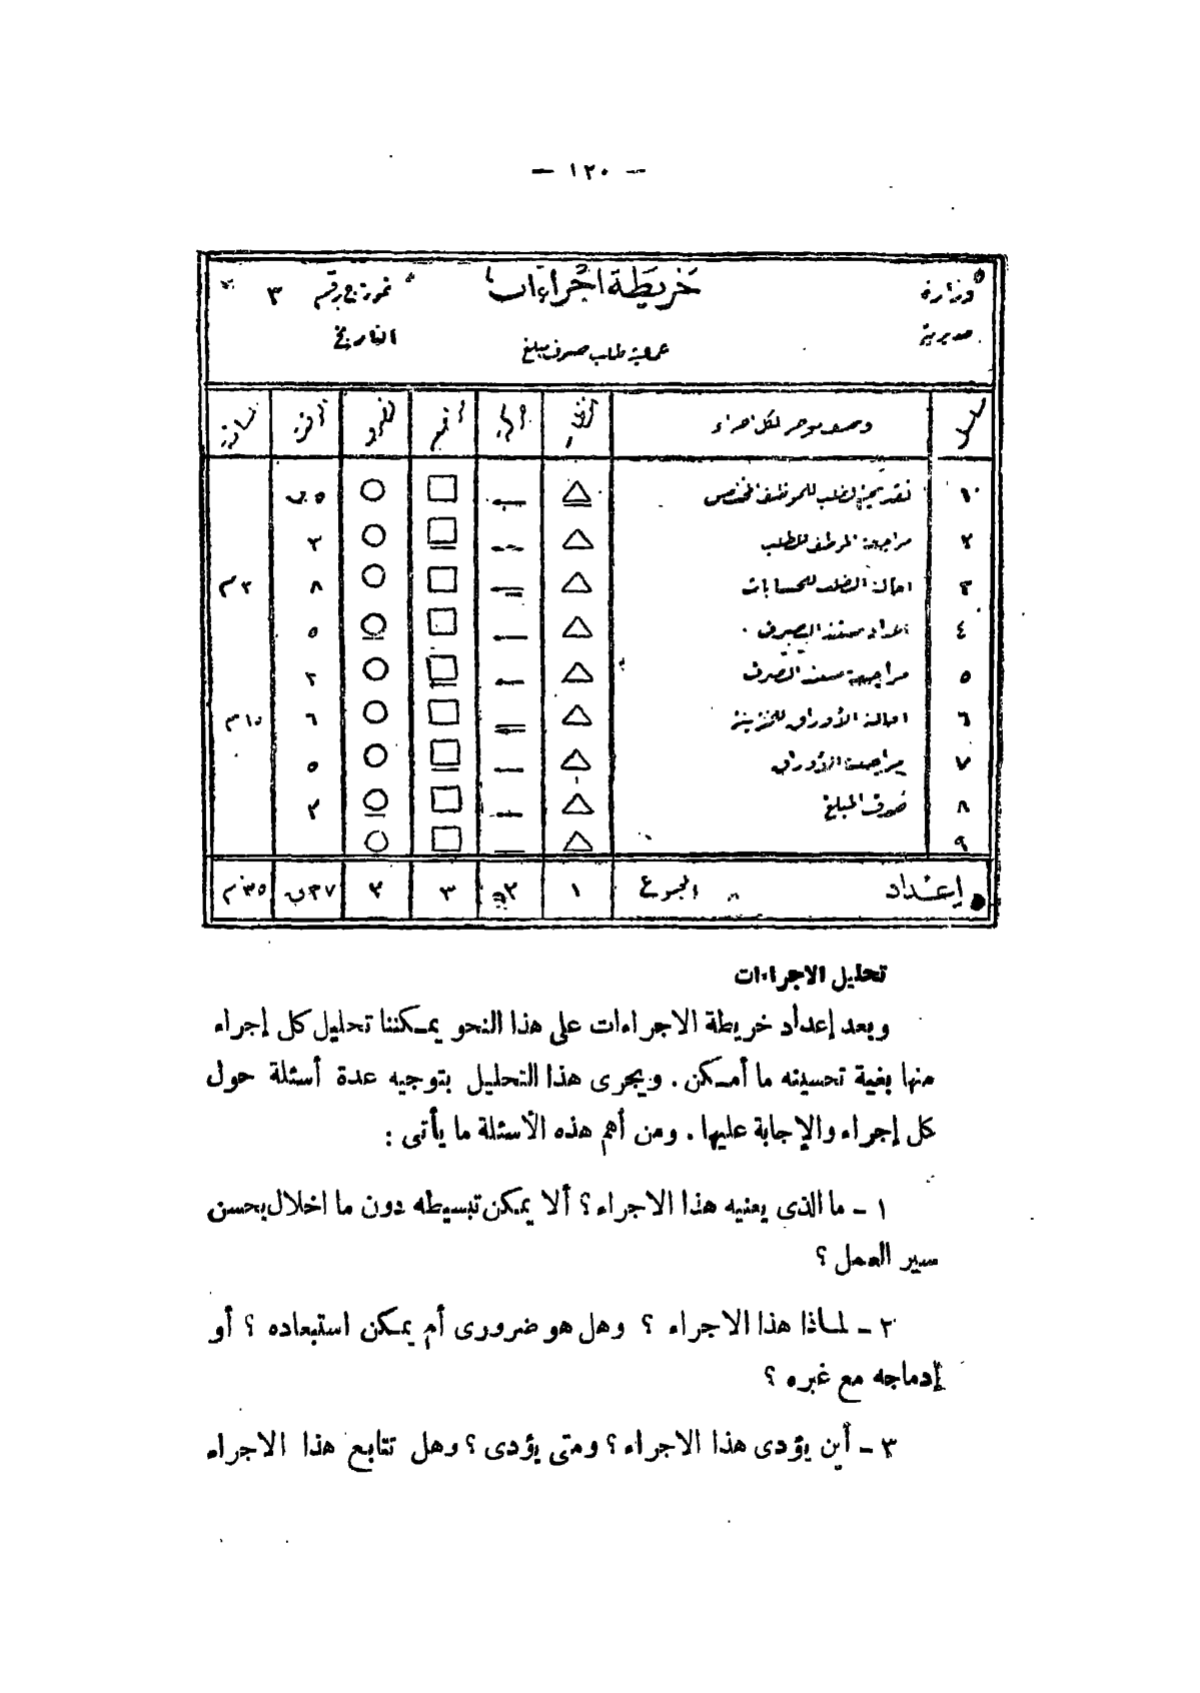 — ١٢٠ —
وزارة خريطة اجراءات نموذج رقم ٣
مديرية عملية طلب صرف مبلغ التاريخ
مسلسل وصف موجز لكل اجراء
١ تقديم الطلب للموظف المختص △ — □ ○ ٥ ق
٢ مراجعة الموظف للطلب △ — □ ○ ٣
٣ احالة الطلب للحسابات △ — □ ○ ٨ ٢٠ م
٤ اعداد مستند الصرف △ — □ ○ ٥
٥ مراجعة مستند الصرف △ — □ ○ ٢
٦ احالة الأوراق للخزينة △ — □ ○ ٦ ١٥ م
٧ مراجعة الأوراق △ — □ ○ ٥
٨ صرف المبلغ △ — □ ○ ٣
٩ △ — □ ○
إعداد المجموع ١ ٢ ٣ ٢ ٣٧ ق ٣٥ م
تحليل الاجراءات
وبعد إعداد خريطة الاجراءات على هذا النحو يمكننا تحليل كل إجراء
منها بغية تحسينه ما أمكن . ويجرى هذا التحليل بتوجيه عدة أسئلة حول
كل إجراء والإجابة عليها . ومن أهم هذه الأسئلة ما يأتى :
١ – ما الذى يعنيه هذا الاجراء ؟ ألا يمكن تبسيطه دون ما اخلال بحسن
سير العمل ؟
٢ – لماذا هذا الاجراء ؟ وهل هو ضرورى أم يمكن استبعاده ؟ أو
إدماجه مع غيره ؟
٣ – أين يؤدى هذا الاجراء ؟ ومتى يؤدى ؟ وهل تتابع هذا الاجراء